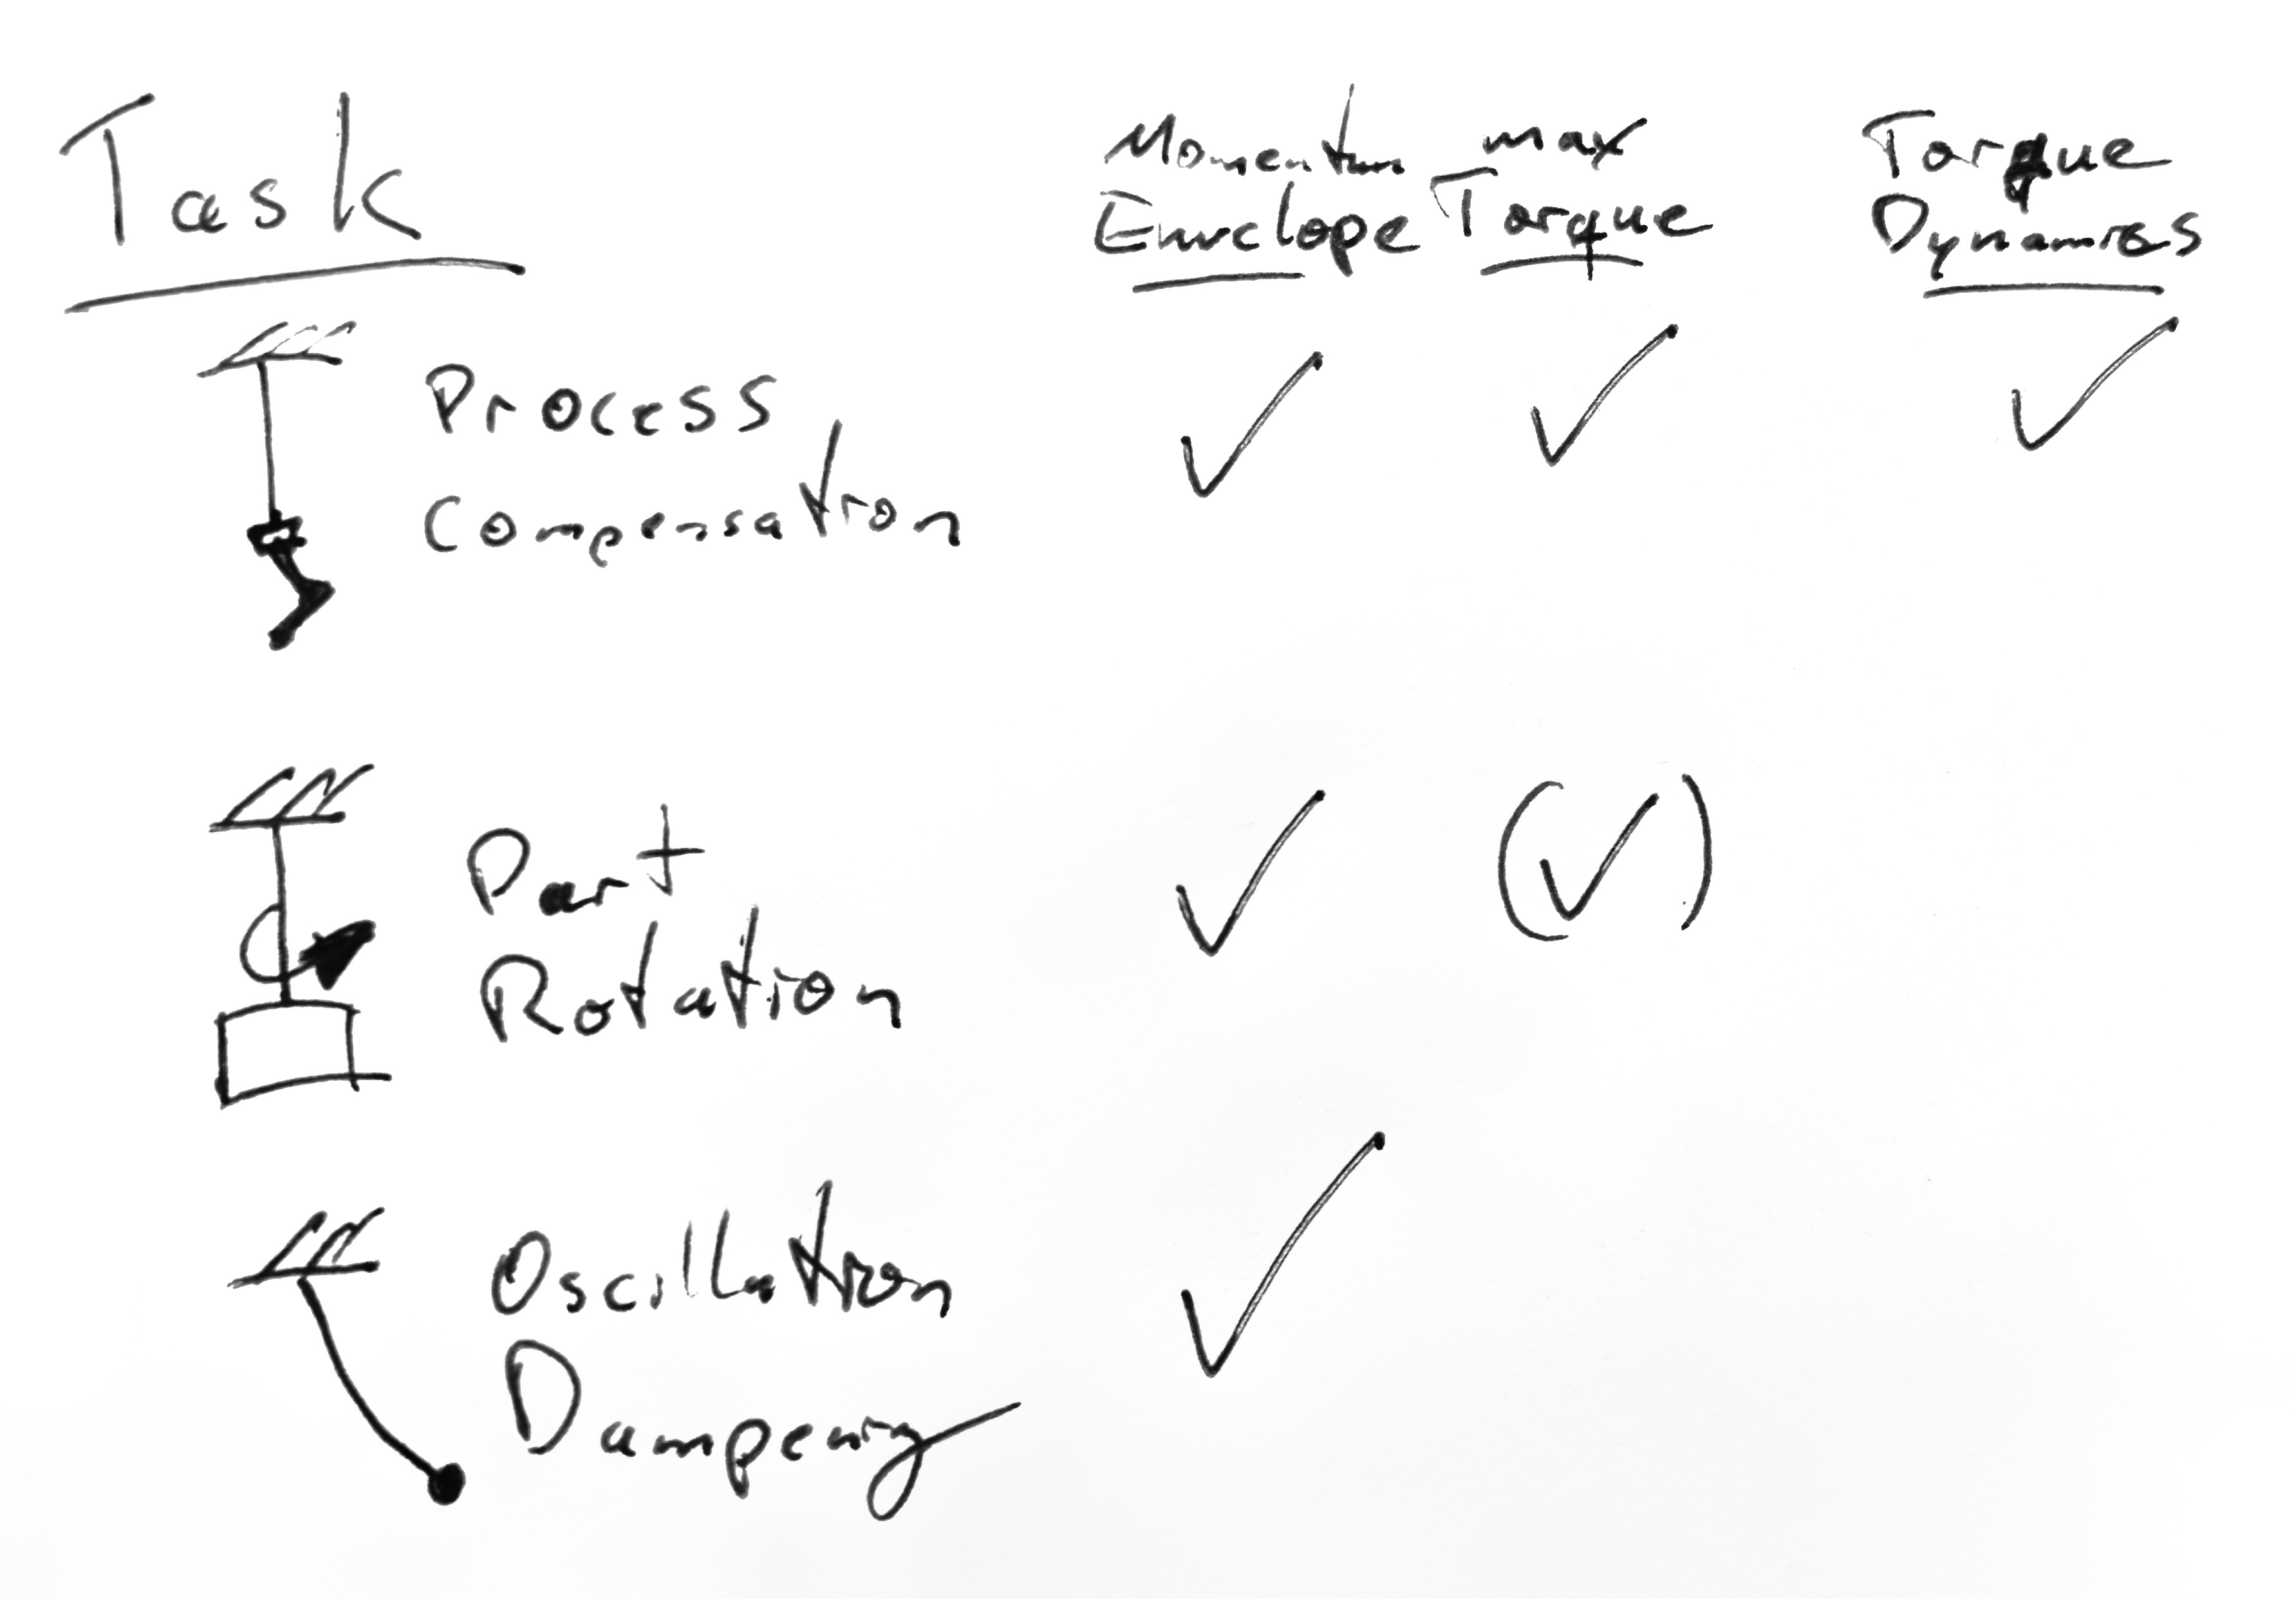 Task
Momentum
Envelope
max
Torque
Torque
Dynamics
Process
Compensation
✓ ✓ ✓
Part
Rotation
✓ (✓)
Oscillation
Dampening
✓